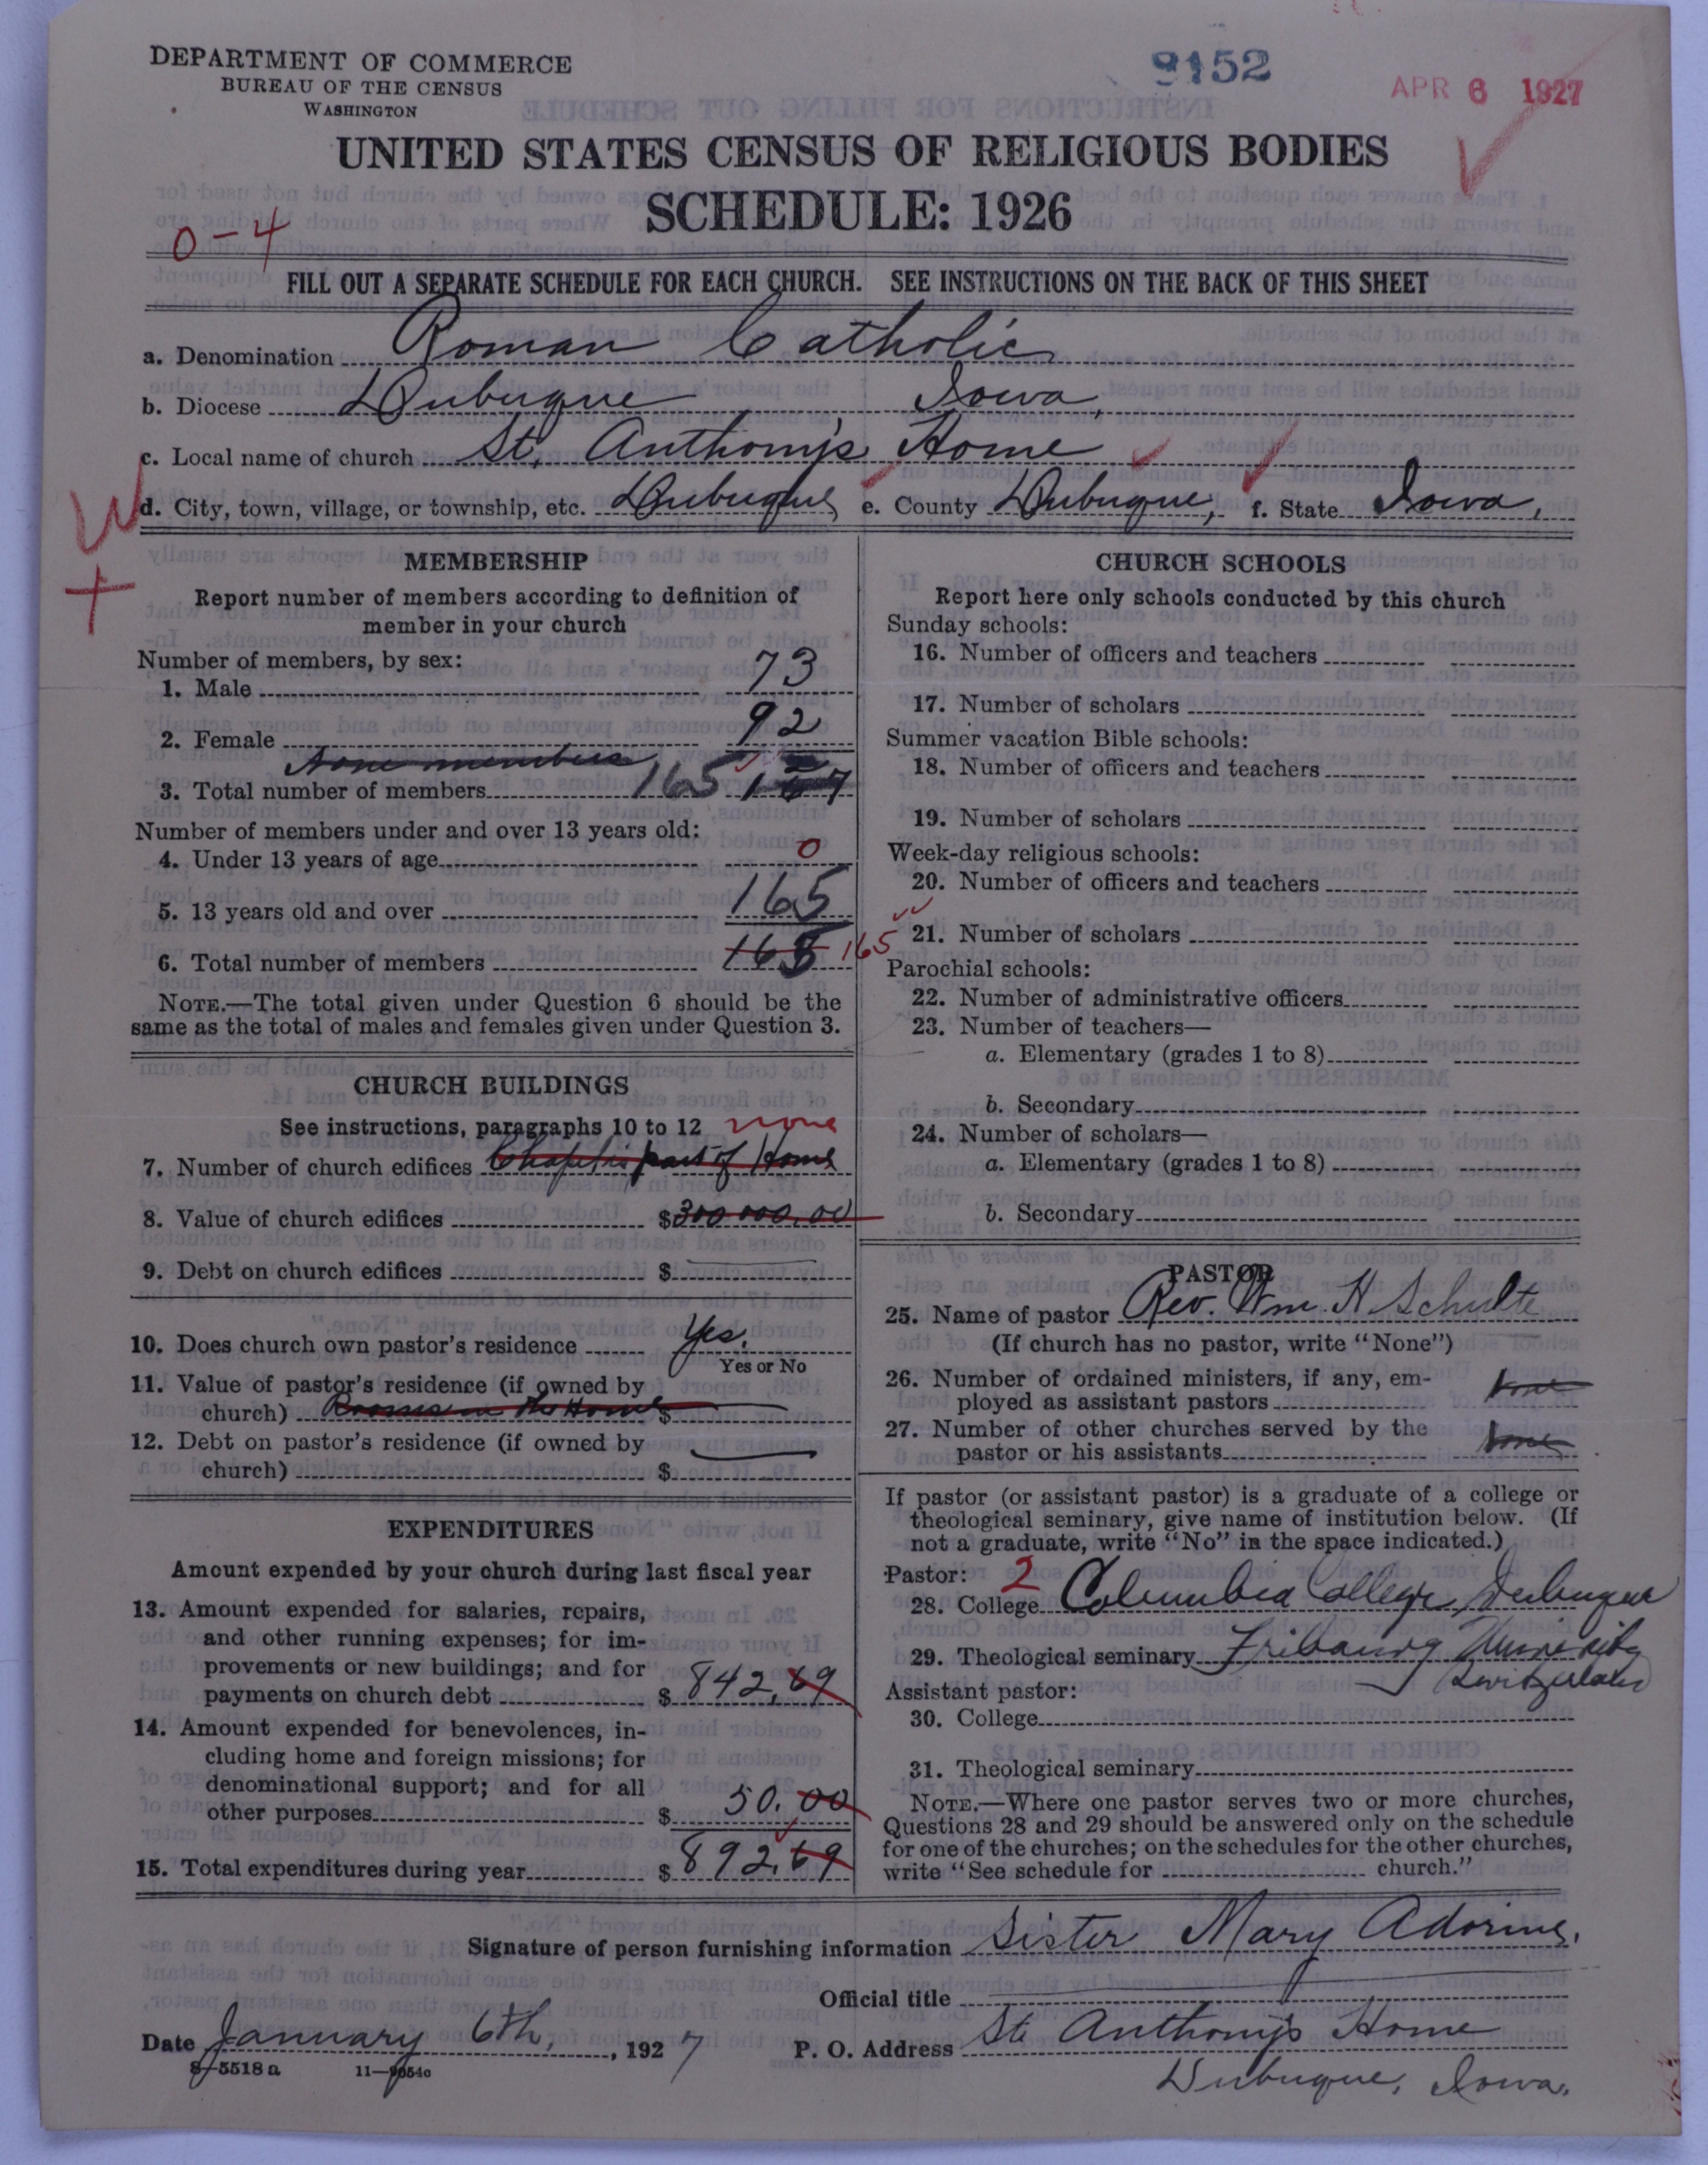 DEPARTMENT OF COMMERCE
BUREAU OF THE CENSUS
WASHINGTON
9152
APR 6 1927
UNITED STATES CENSUS OF RELIGIOUS BODIES
SCHEDULE: 1926
0-4
FILL OUT A SEPARATE SCHEDULE FOR EACH CHURCH. SEE INSTRUCTIONS ON THE BACK OF THIS SHEET
a. Denomination Roman Catholic
b. Diocese Dubuque Iowa,
c. Local name of church St. Anthony's Home
W
d. City, town, village, or township, etc. Dubuque e. County Dubuque, f. State Iowa,
MEMBERSHIP
Report number of members according to definition of
member in your church
Number of members, by sex:
1. Male 73
2. Female 92
Home members
3. Total number of members 165
Number of members under and over 13 years old:
4. Under 13 years of age 0
5. 13 years old and over 165
6. Total number of members 165 165
NOTE.—The total given under Question 6 should be the
same as the total of males and females given under Question 3.
CHURCH BUILDINGS
See instructions, paragraphs 10 to 12 none
7. Number of church edifices Chapel is part of Home
8. Value of church edifices $300 000.00
9. Debt on church edifices $
10. Does church own pastor's residence Yes.
Yes or No
11. Value of pastor's residence (if owned by
church) Rooms in the Home $
12. Debt on pastor's residence (if owned by
church) $
EXPENDITURES
Amount expended by your church during last fiscal year
13. Amount expended for salaries, repairs,
and other running expenses; for im-
provements or new buildings; and for
payments on church debt $ 842.69
14. Amount expended for benevolences, in-
cluding home and foreign missions; for
denominational support; and for all
other purposes $ 50.00
15. Total expenditures during year $ 892.69
CHURCH SCHOOLS
Report here only schools conducted by this church
Sunday schools:
16. Number of officers and teachers
17. Number of scholars
Summer vacation Bible schools:
18. Number of officers and teachers
19. Number of scholars
Week-day religious schools:
20. Number of officers and teachers
21. Number of scholars
Parochial schools:
22. Number of administrative officers
23. Number of teachers—
a. Elementary (grades 1 to 8)
b. Secondary
24. Number of scholars—
a. Elementary (grades 1 to 8)
b. Secondary
PASTOR
25. Name of pastor Rev. Wm. H Schulte
(If church has no pastor, write "None")
26. Number of ordained ministers, if any, em-
ployed as assistant pastors None
27. Number of other churches served by the
pastor or his assistants None
If pastor (or assistant pastor) is a graduate of a college or
theological seminary, give name of institution below. (If
not a graduate, write "No" in the space indicated.)
Pastor: 2
28. College Columbia College, Dubuque
29. Theological seminary Fribourg University
Switzerland
Assistant pastor:
30. College
31. Theological seminary
NOTE.—Where one pastor serves two or more churches,
Questions 28 and 29 should be answered only on the schedule
for one of the churches; on the schedules for the other churches,
write "See schedule for church."
Signature of person furnishing information Sister Mary Adorine,
Official title
Date January 6th, 1927 P. O. Address St. Anthony's Home
8-5518a 11—9054c
Dubuque, Iowa.